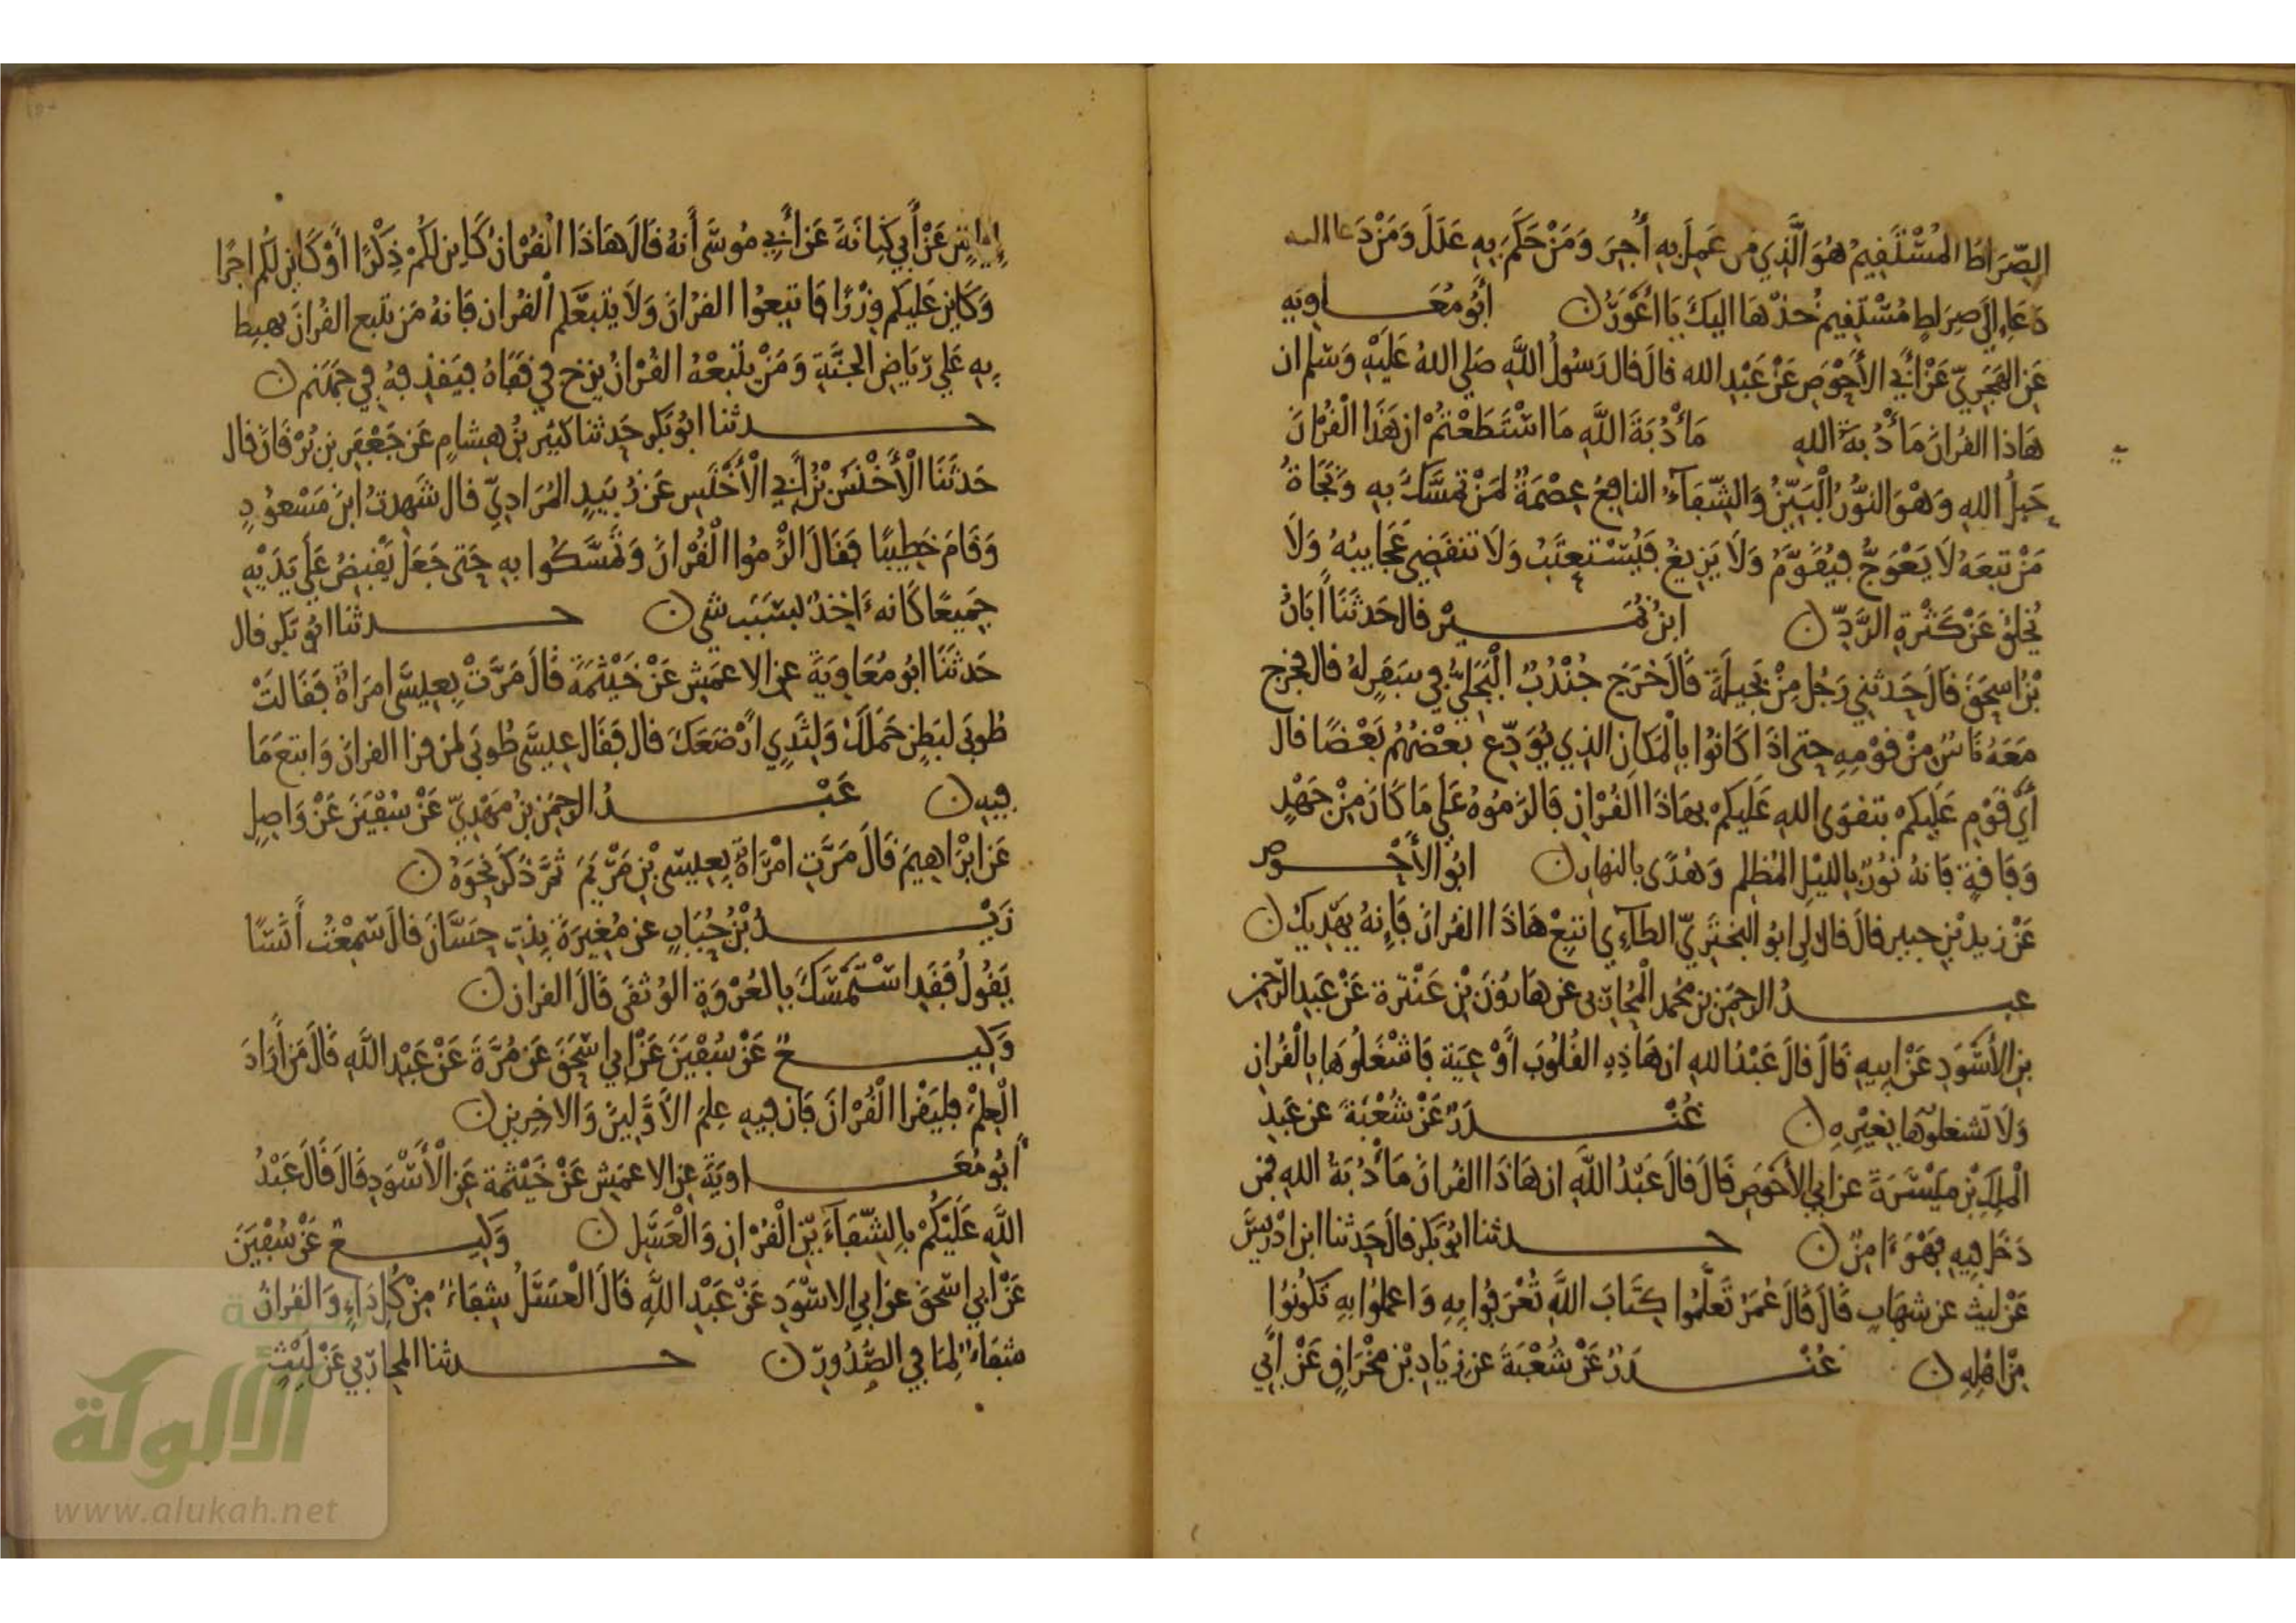 الصِّرَاطَ المُسْتَقِيمُ هُوَ الَّذِي مَن عَمِلَ بِهِ أُجِرَ وَمَنْ حَكَمَ بِهِ عَدَلَ وَمَنْ دَعَا اليه
دَعَا إِلَى صِرَاطٍ مُسْتَقِيمٍ خُذْهَا اليكَ يَا أَعْوَرُ ن أَبُو مُعَاوِيه
عَنِ الهَجَرِيِّ عَنْ أَبِي الأَحْوَصِ عَنْ عَبْدِ الله قالَ قال رَسُولُ اللَّهِ صَلى اللهُ عَلَيْهِ وَسَلم ان
هَاذا القُرانَ مَأْدُبَةُ اللهِ مَأْدُبَةَ اللَّهِ مَا اسْتَطَعْتُمْ ان هَذَا الْقُرْانَ
حَبلُ اللهِ وَهْوَ النُّورُ الْبَيِّنُ وَالشِّفَآءُ النافِعُ عِصْمَةٌ لِمَنْ تَمَسَّكَ بِهِ وَنَجَاةُ
مَنْ تَبِعَهُ لَا يَعْوَجُّ فيُقَوَّمُ وَلَا يَزِيغُ فَيُسْتَعتَبُ وَلَا تنقَضِي عَجَايبُهُ وَلَا
يُخلَقُ عَنْ كَثْرَةِ الرَّدِّ ن ابنُ نُمَيْر قال حَدثَنَا أَبَانُ
بْنُ اسحٰقَ قالَ حَدثني رَجُل مِنْ بَجِيلَةَ قَالَ خَرَجَ جُنْدُبٌ الْبَجَلِيُّ فِي سَفَرٍ لهُ قال فخرج
مَعَهُ نَاسٌ مِنْ قَوْمِهِ حتى اذَا كَانُوا بِالْمَكانِ الذِي يُوَدِّع بَعْضُهُم بَعْضًا قال
أَيْ قَوْمِ عَلَيكمْ بتقوَى اللهِ عَلَيكمْ بهَاذَا القُرْانِ فَالزَمُوهُ عَلَى مَا كَانَ مِنْ جَهْدٍ
وَفَاقةٍ فَانهُ نُورٌ بِالليْلِ المُظلِمِ وَهُدًى بالنهارِ ن ابُو الأَحْوَصِ
عَنْ زيد بْنِ جبير قالَ قال لِي ابُو البَختَرِيِّ الطآءِي اتبِعْ هَاذَا القُرانَ فَإِنهُ يَهْدِيكَ ن
عبدُ الرحمٰنِ بنِ مُحمد الْمُحَارِبي عن هَارُونَ بْنِ عَنْتَرة عَنْ عَبدِ الرَّحمٰنِ
بنِ الأَسْوَدِ عَنْ ابيهِ قَالَ قالَ عَبْدُ اللهِ ان هَاذِهِ القُلُوبَ أَوْعِيَة فَاشْغَلُوهَا بِالْقُرانِ
وَلَا تَشغلُوهَا بِغَيْرِهِ ن غُنْدَرٌ عَنْ شُعْبَةَ عن عَبدِ
الْمَلِكِ بْنِ مَيْسَرَةَ عن ابي الأَحْوَصِ قَالَ قالَ عَبْدُ اللَّهِ ان هَاذَا القُرانَ مَأْدُبَةُ اللهِ فمَن
دَخَلَ فِيهِ فَهْوَ ءَامِنٌ ن حدثنا ابُو بَكر قالَ حَدثنا ابن ادْرِيسَ
عَنْ ليث عن شهَابٍ قَالَ قَالَ عُمَرُ تَعَلَّمُوا كِتَابَ اللَّهِ تُعْرَفُوا بِهِ وَاعمَلُوا بِهِ تَكُونُوا
مِنْ اهلِهِ ن غُنْدَرٌ عَنْ شُعْبَةَ عن زِيَادِ بْنِ مِخْرَاقٍ عَنْ ابِي
إِيَاسٍ عَنْ أَبِي كِنَانَةَ عَن أَبِي مُوسَى أَنهُ قَالَ هَاذَا القُرْانُ كَاين لَكُمْ ذِكْرًا أَوْ كَاين لَكُم اجرًا
وَكَاين عَليكم وِزْرًا فَاتبِعُوا القُرْانَ وَلَا يَتبَعَنَّكُم القُران فَانهُ مَن تَبع القُرانَ يهبِط
بِهِ عَلى رِيَاضِ الجَنَّةِ وَمَنْ يَتبَعْهُ القُرْانُ يزخ في قَفَاهُ فيَقذِفهُ في جَهَنم ن
حدثنا ابُو بَكر حَدثنا كثِير بنُ هِشامٍ عَن جَعْفَر بن بُرْقَانَ قال
حَدثَنَا الْأَخْنَسُ بْنُ أَبِي الْأَخْنَسِ عَن زُبَيدٍ المُرَادِيِّ قال شَهِدتُ ابنَ مَسْعُودٍ
وَقَامَ خَطِيبًا فَقَالَ الزَمُوا الْقُرْانَ وَتَمَسَّكُوا بِهِ حَتى جَعَلَ يَقبِضُ عَلَى يَدَيْهِ
جَمِيعًا كَانه ءَاخِذٌ بسَبَبِ شي ن حدثنا ابُو بَكر قال
حَدثَنَا ابُو مُعَاوِيَةَ عن الاعمَشِ عَنْ خَيْثَمَةَ قَالَ مَرَّتْ بِعِيسَى امرَاةٌ فَقَالتْ
طُوبَى لبَطنٍ حَمَلَكَ وَلِثَدْيٍ أَرْضَعَكَ قال فَقَال عِيسَى طُوبَى لمَن قرا القرانَ وَاتبَعَ مَا
فِيهِ ن عَبْدُ الرحمٰنِ بنُ مَهْدِيِّ عَنْ سُفْيَنَ عَنْ وَاصِلٍ
عَن ابْرَاهِيمَ قَالَ مَرَّتِ امْرَاةٌ بِعِيسَى بْنِ مَرْيَمَ ثُمَّ ذكَرَ نَحْوَهُ ن
زَيْدُ بْنُ حُبَابٍ عن مُغِيرَةَ بِنتِ حَسَّانَ قالَ سَمِعْتُ أَنَسًا
يَقُولُ فَقَدِ اسْتَمْسَكَ بِالعُرْوَةِ الوُثقَى قَالَ القران ن
وَكِيعٌ عَنْ سُفْيَنَ عَنْ ابِي اسْحٰقَ عَن مُرَّةَ عَنْ عَبْدِ اللَّهِ قَالَ مَن أَرَادَ
الْعِلْمَ فليَقْرا الْقُرْانَ فَان فيهِ عِلمَ الأَوَّلِينَ وَالاخِرِينَ ن
أَبُو مُعَاوِيَةَ عن الاعمَشِ عَنْ خَيْثَمة عَنِ الْأَسْوَدِ قَالَ قَالَ عَبْدُ
اللَّهِ عَلَيْكُمْ بِالشِّفَآءَيْنِ الْقُرْانِ وَالْعَسَلِ ن وَكِيعٌ عَنْ سُفْيَنَ
عَنْ ابي اسْحٰقَ عن ابي الاسْوَدِ عَنْ عَبْدِ اللَّهِ قَالَ الْعَسَلُ شِفَاءٌ مِنْ كُلِّ دَاءٍ وَالقُرانُ
شِفَاءٌ لِمَا فِي الصُّدُورِ ن حدثنا المحَارِبي عَنْ لَيْثٍ
الألوكة
www.alukah.net